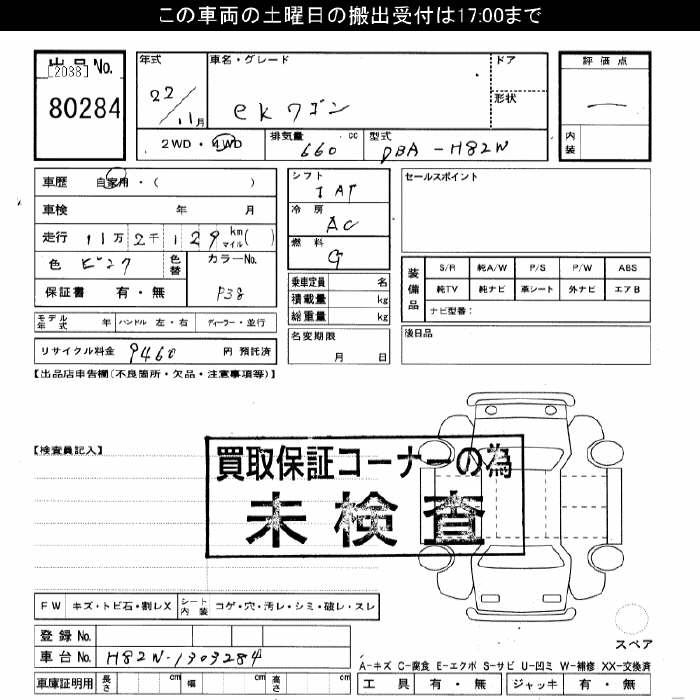 この車両の土曜日の搬出受付は17:00まで
出品No.
[2038]
80284
年式
22/11月
車名・グレード
ekワゴン
ドア
形状
評価点
内装
2WD・4WD
排気量 660 cc
型式 DBA-H82W
車歴 自家用・( )
車検 年 月
走行 11万2千129km マイル( )
色 ピンク
色替
カラーNo.
P38
保証書 有・無
シフト
IAT
冷房
AC
燃料
G
乗車定員 名
積載量 kg
総重量 kg
セールスポイント
装備品
S/R 純A/W P/S P/W ABS
純TV 純ナビ 革シート 外ナビ エアB
ナビ型番：
モデル年式 年 ハンドル 左・右 ディーラー・並行
名変期限
月 日
後日品
リサイクル料金 9460 円 預託済
【出品店申告欄(不良箇所・欠品・注意事項等)】
【検査員記入】
買取保証コーナーの為
未検査
FW キズ・トビ石・割レX
シート内装 コゲ・穴・汚レ・シミ・破レ・スレ
スペア
登録No.
車台No. H82W-1303284
A-キズ C-腐食 E-エクボ S-サビ U-凹ミ W-補修 XX-交換済
車庫証明用 長さ cm 幅 cm 高さ cm
工具 有・無 ジャッキ 有・無